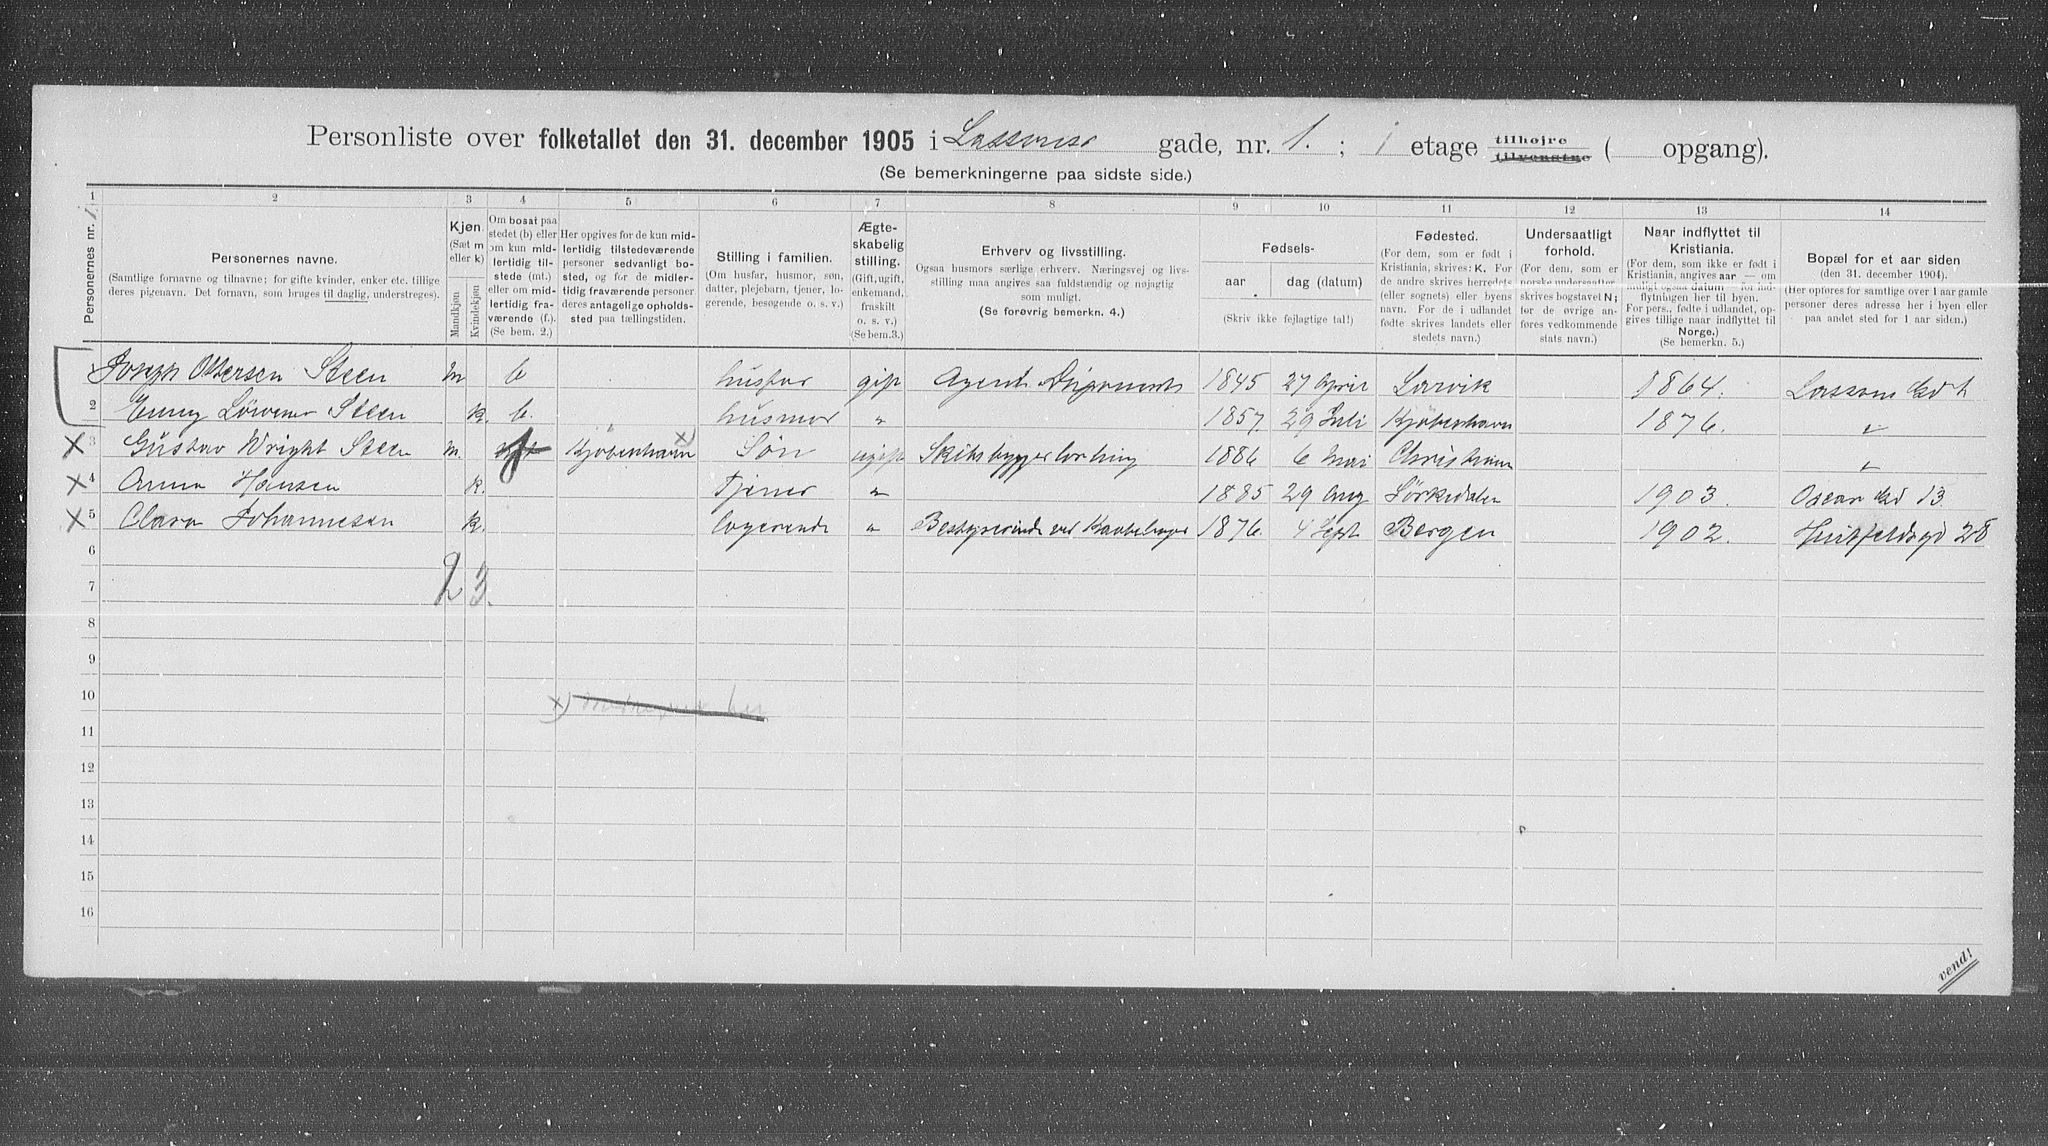 Personliste over folketallet den 31. december 1905 i Lassons gade, nr. 1. ; 1 etage tilhøjre tilvenstre ( opgang).
(Se bemerkningerne paa sidste side.)
1 2 3 4 5 6 7 8 9 10 11 12 13 14
Personernes nr.
Personernes navne.
(Samtlige fornavne og tilnavne; for gifte kvinder, enker etc. tillige
deres pigenavn. Det fornavn, som bruges til daglig, understreges).
Kjøn.
(Sæt m
eller k)
Mandkjøn
Kvindekjøn
Om bosat paa
stedet (b) eller
om kun mid-
lertidig til-
stede (mt.)
eller om mid-
lertidig fra-
værende (f.).
(Se bem. 2.)
Her opgives for de kun mid-
lertidig tilstedeværende
personer sedvanlig bo-
sted, og for de midler-
tidig fraværende personer
deres antagelige opholds-
sted paa tællingstiden.
Stilling i familien.
(Om husfar, husmor, søn,
datter, plejebarn, tjener, lo-
gerende, besøgende o. s. v.)
Ægte-
skabelig
stilling.
(Gift, ugift,
enkemand,
fraskilt
o. s. v.)
(Se bem.3.)
Erhverv og livsstilling.
Ogsaa husmors særlige erhverv. Næringsvej og livs-
stilling maa angives saa fuldstændig og nøjagtig
som muligt.
(Se forøvrig bemerkn. 4.)
Fødsels-
aar
dag (datum)
(Skriv ikke fejlagtige tal!)
Fødested.
(For dem, som er født i
Kristiania, skrives: K. For
de andre skrives herredets
(eller sognets) eller byens
navn. For de i udlandet
fødte skrives landets eller
stedets navn.)
Undersaatligt
forhold.
(For dem, som er
norske undersaatter,
skrives bogstavet N;
for de øvrige an-
føres vedkommende
stats navn.)
Naar indflyttet til
Kristiania.
(For dem, som ikke er født i
Kristiania, angives aar — om
muligt ogsaa datum — for ind-
flytningen her til byen.
For pers., fødte i udlandet, op-
gives tillige naar indflyttet til
Norge.)
(Se bemerkn. 5.)
Bopæl for et aar siden
(den 31. december 1904).
(Her opføres for samtlige over 1 aar gamle
personer deres adresse her i byen eller
paa andet sted for 1 aar siden.)
Joseph Ottersen Steen m b husfar gift Agent 1845 27 April Larvik 1864. Lassons Gd 1
2 Emmy Löwener Steen k. b. husmor " 1857. 29 Juli Kjøbenhavn 1876. "
X 3 Gustav Wright Steen m. f Kjøbenhavn x) Søn ugift Skibsbyggerlærling 1886 6 Mai Christiania "
X 4 Anna Hansen k. Tjener " 1885 29 Aug Sørkedalen 1903. Oscars Gd 13.
X 5 Clara Johannesen k. logerende " Bestyrerinde ved 1876. 4 Sept Bergen 1902. Huitfeldsgd 28
6
2 3.
7
8
9
10
x)
11
12
13
14
15
16
vend!